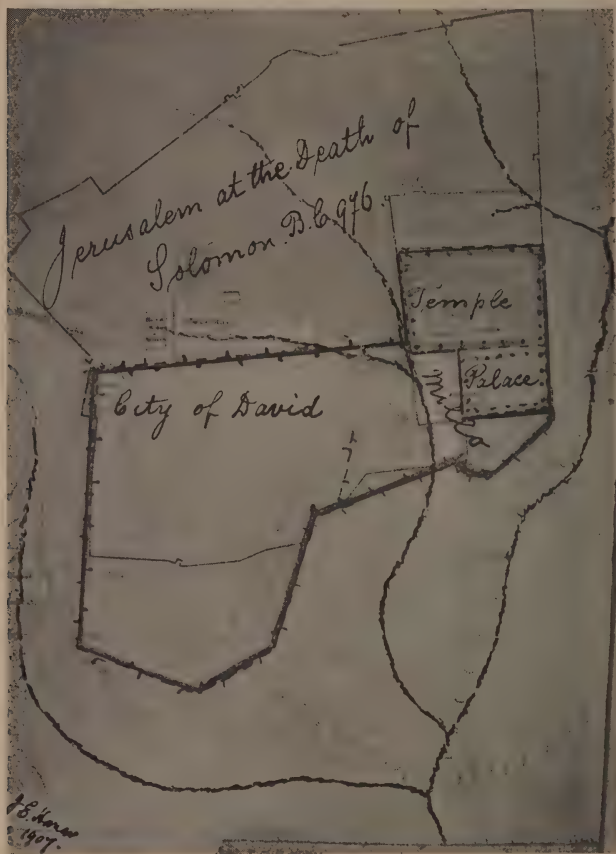 Jerusalem at the Death of
Solomon. B.C. 976.
Temple
Palace.
Millo
City of David
1907.